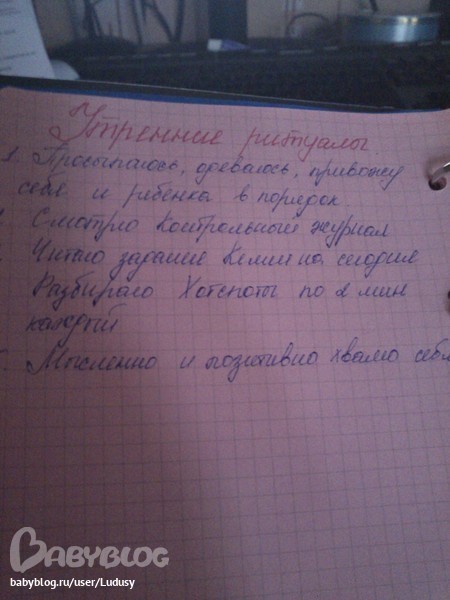 Утренние ритуалы
1. Просыпаюсь, одеваюсь, привожу
себя и ребенка в порядок
Смотрю Контрольный журнал
Читаю задание Кемии на сегодня
Разбираю Хотспоты по 2 мин
каждый
Мысленно и позитивно хвалю себя
BABYBLOG
babyblog.ru/user/Ludusy